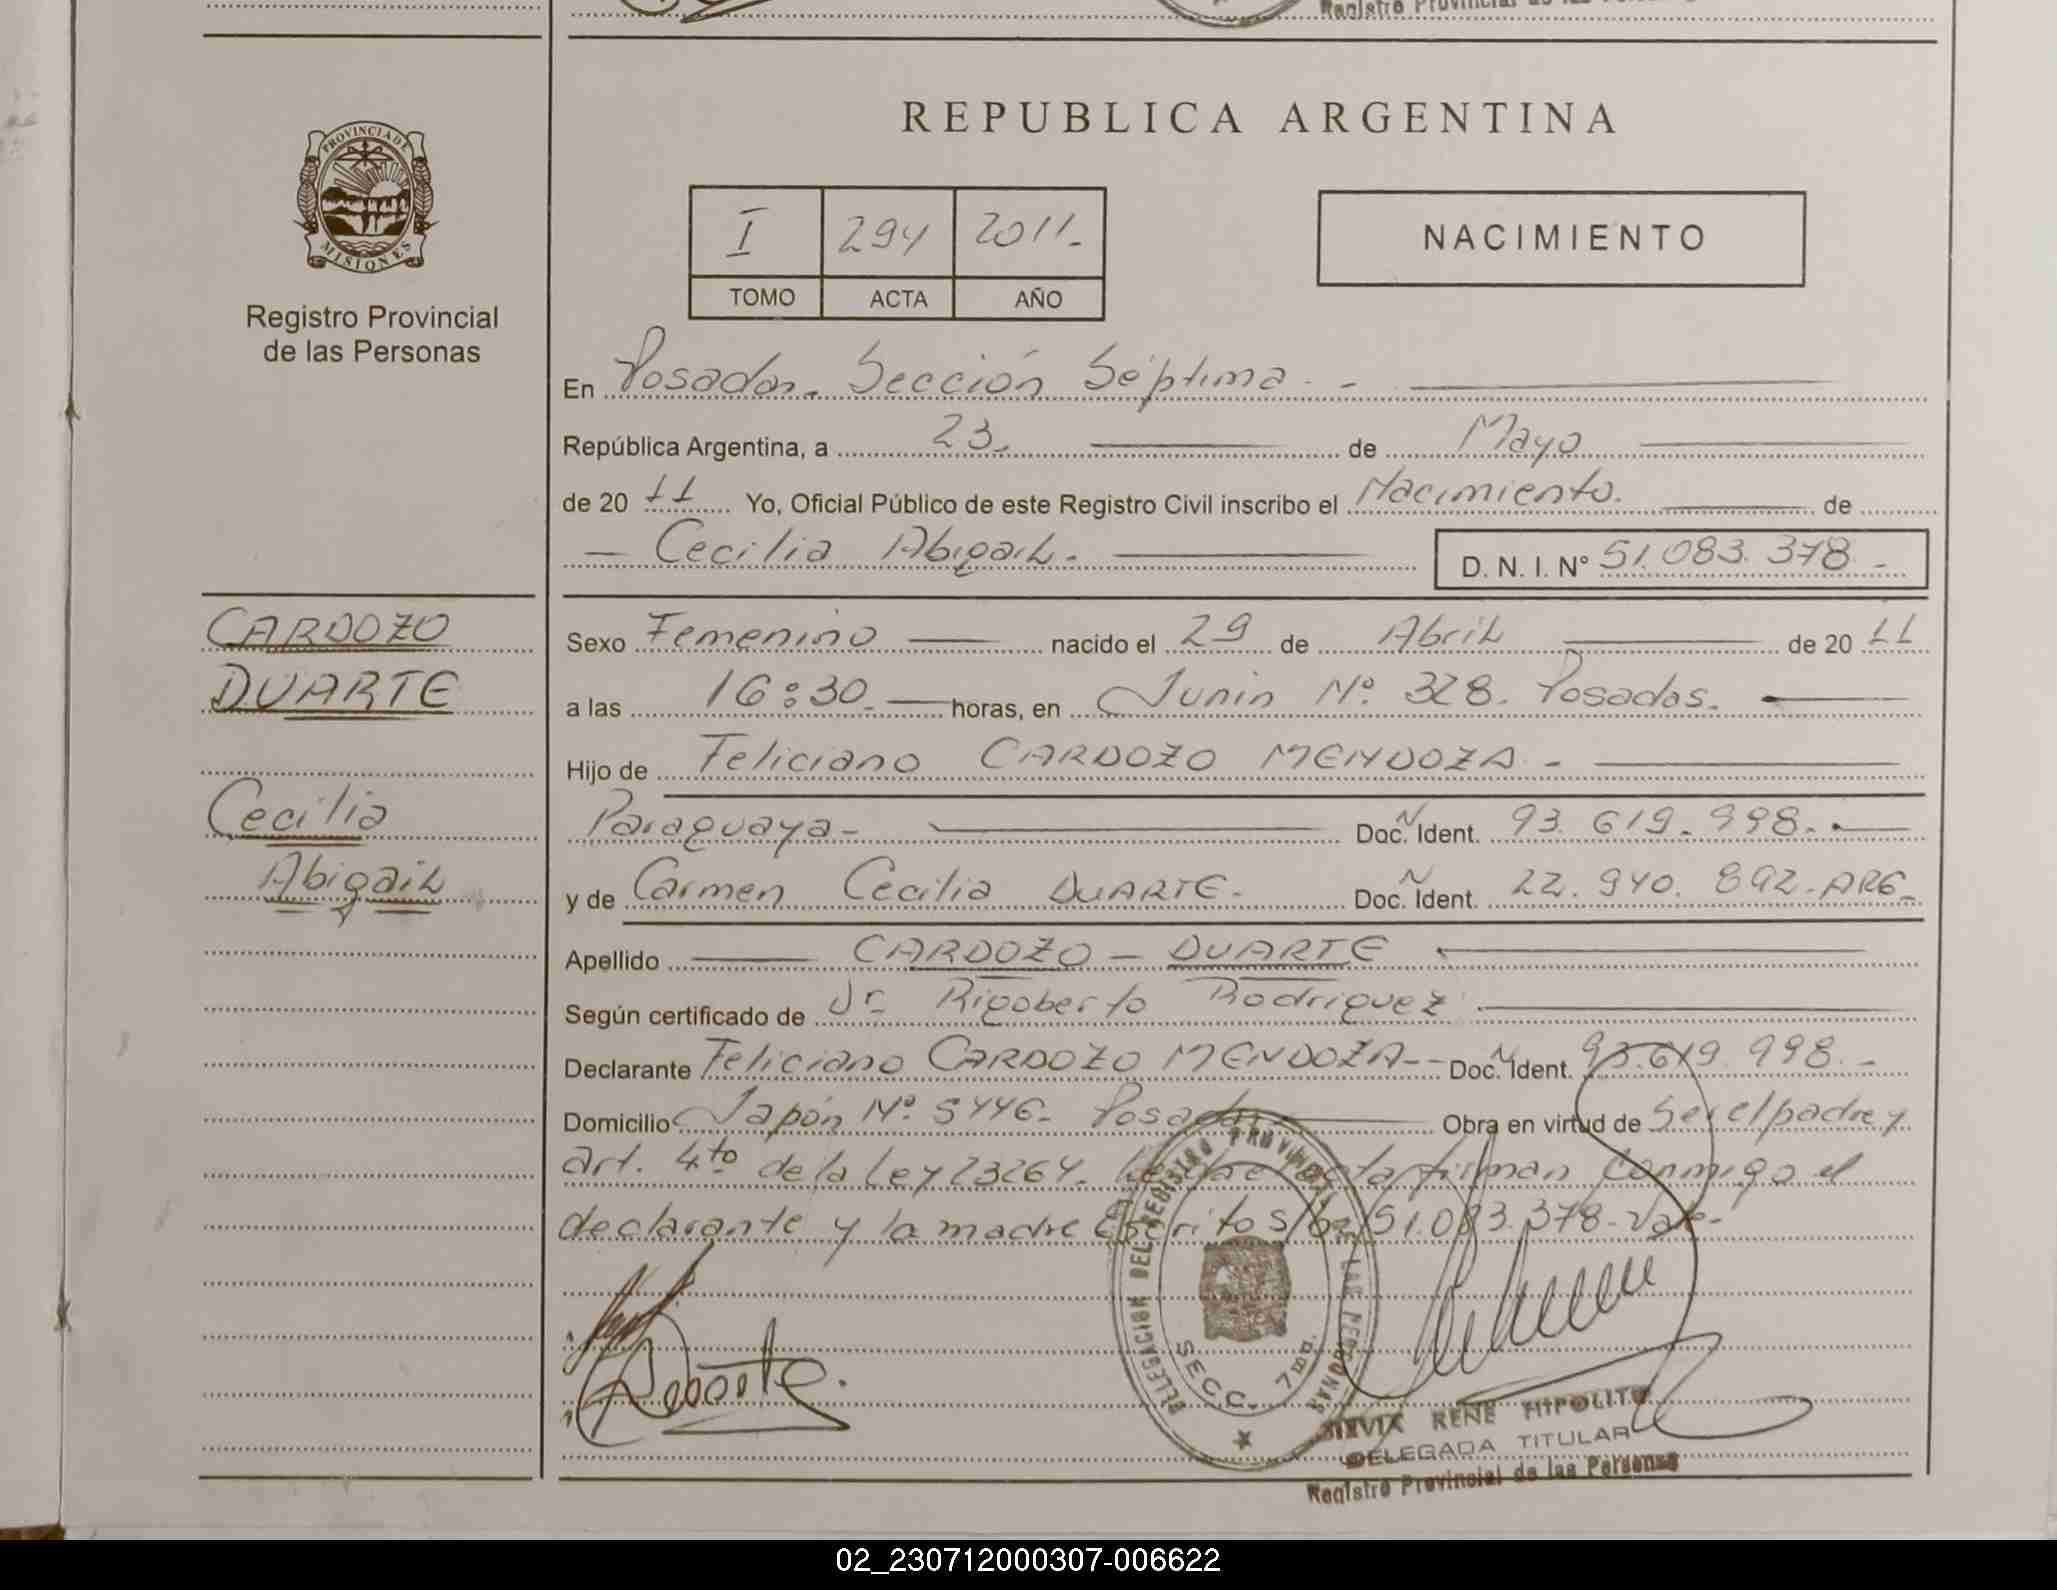 Registro Provincial de las Personas
PROVINCIA DE
MISIONES
Registro Provincial
de las Personas
REPUBLICA ARGENTINA
I 294 2011.-
TOMO ACTA AÑO
NACIMIENTO
En Posadas. Sección Séptima. -
República Argentina, a 23. de Mayo
de 20 11 Yo, Oficial Público de este Registro Civil inscribo el Nacimiento. de
Cecilia Abigail.- D. N. I. Nº 51.083.378 -
CARDOZO
DUARTE
Cecilia
Abigail
Sexo Femenino nacido el 29 de Abril de 20 11
a las 16:30. horas, en Junin Nº 328. Posadas.
Hijo de Feliciano CARDOZO MENDOZA. -
Paraguaya - Doc. Ident. 93.619.998.-
y de Carmen Cecilia DUARTE.- Doc. Ident. 22.940.892.-ARG-
Apellido CARDOZO - DUARTE
Según certificado de Dr. Rigoberto Rodriguez
Declarante Feliciano CARDOZO MENDOZA-- Doc. Ident. 93.619.998.-
Domicilio Japón Nº 5446- Posadas Obra en virtud de Ser el padre y
art. 4to de la Ley 23264. firman conmigo el
declarante y la madre Escrito S/bz 51.083.378-Vale-
Duarte.
DELEGACION DEL REGISTRO PROVINCIAL DE LAS PERSONAS
SECC. 7ma.
RENE HIPOLITO
DELEGADA TITULAR
Registro Provincial de las Personas
02_230712000307-006622